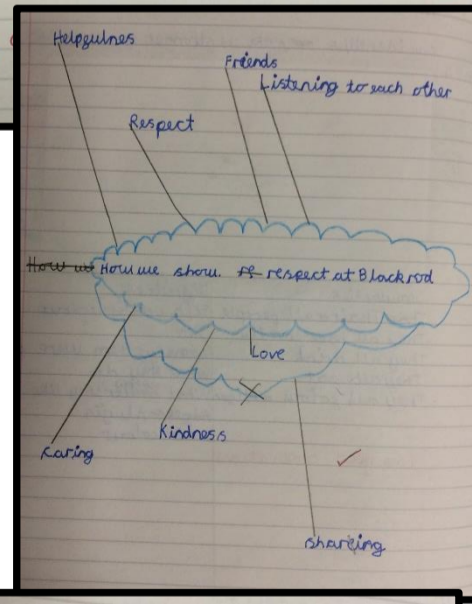 Helpgulnes
Friends
Listening to each other
Respect
How we How we show. re respect at Blackrod
Love
Kindness
Karing
sharing